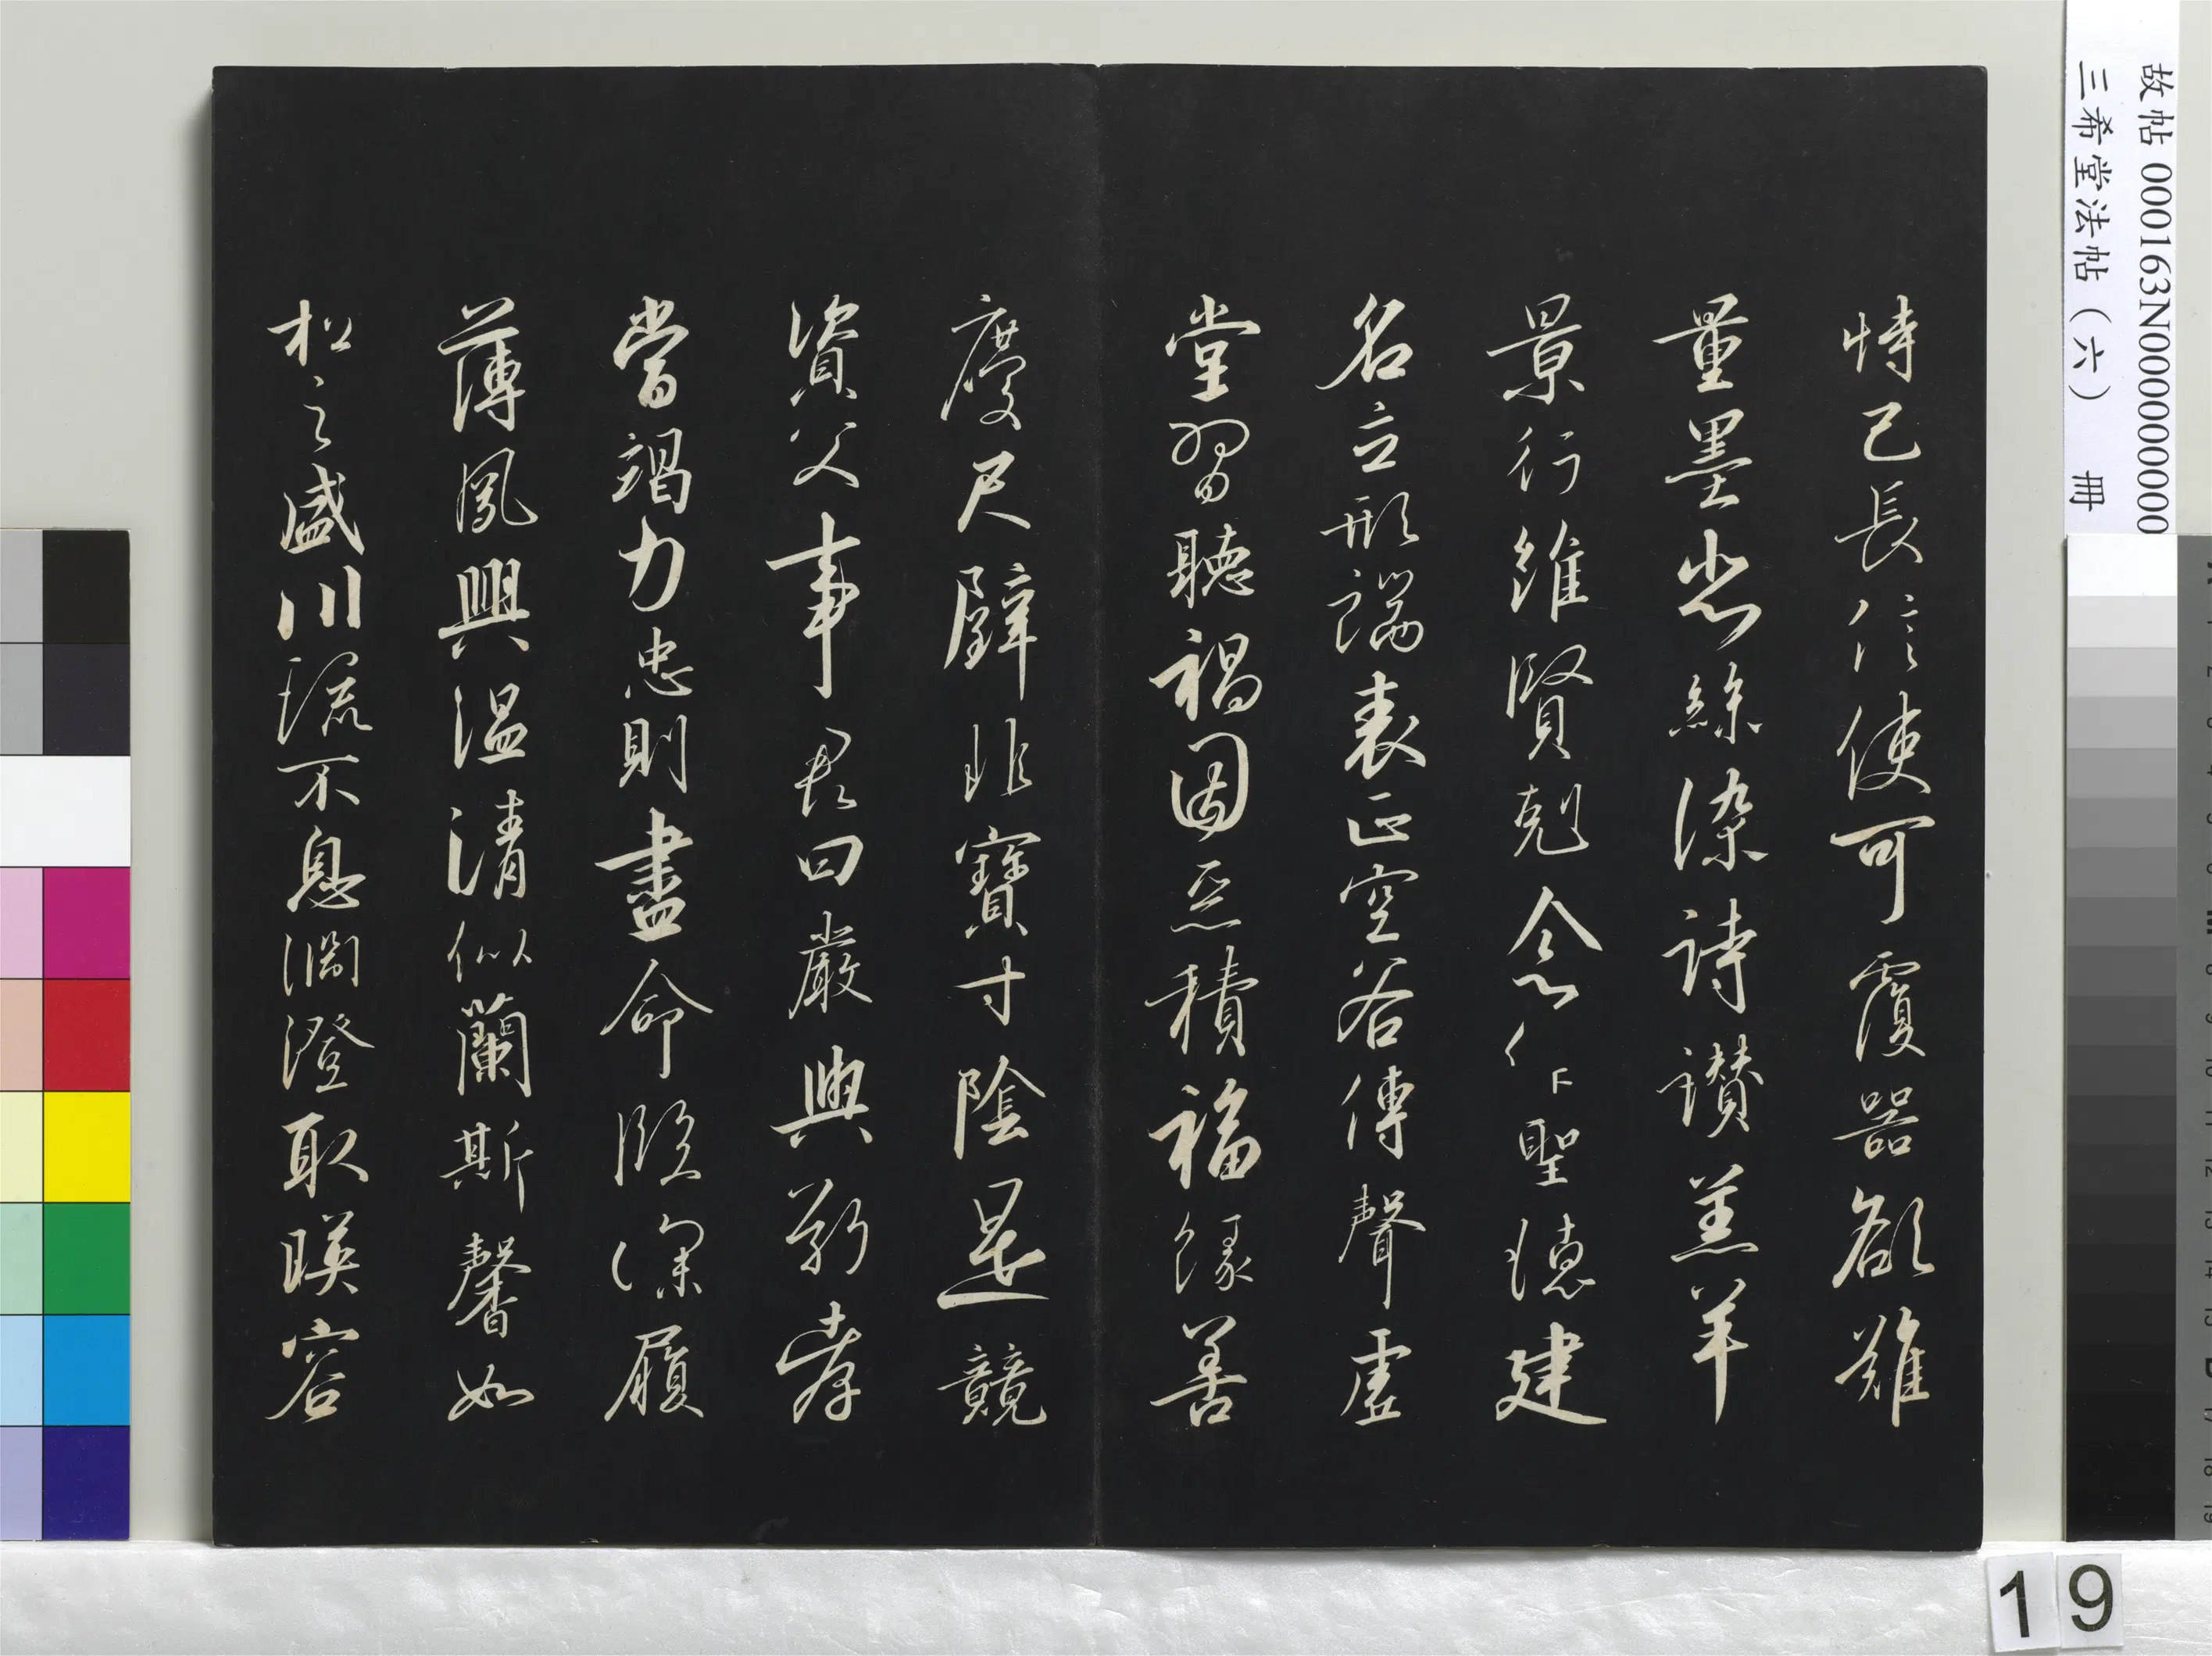 恃己長信使可覆器欲難
量墨悲絲染詩讃羔羊
景行維賢剋念作聖德建
名立形端表正空谷傳聲虛
堂習聽禍因惡積福緣善
慶尺璧非寶寸陰是競
資父事君曰嚴與敬孝
當竭力忠則盡命臨深履
薄夙興溫清似蘭斯馨如
松之盛川流不息淵澄取暎容
故帖 000163N000000000
三希堂法帖（六） 冊
19